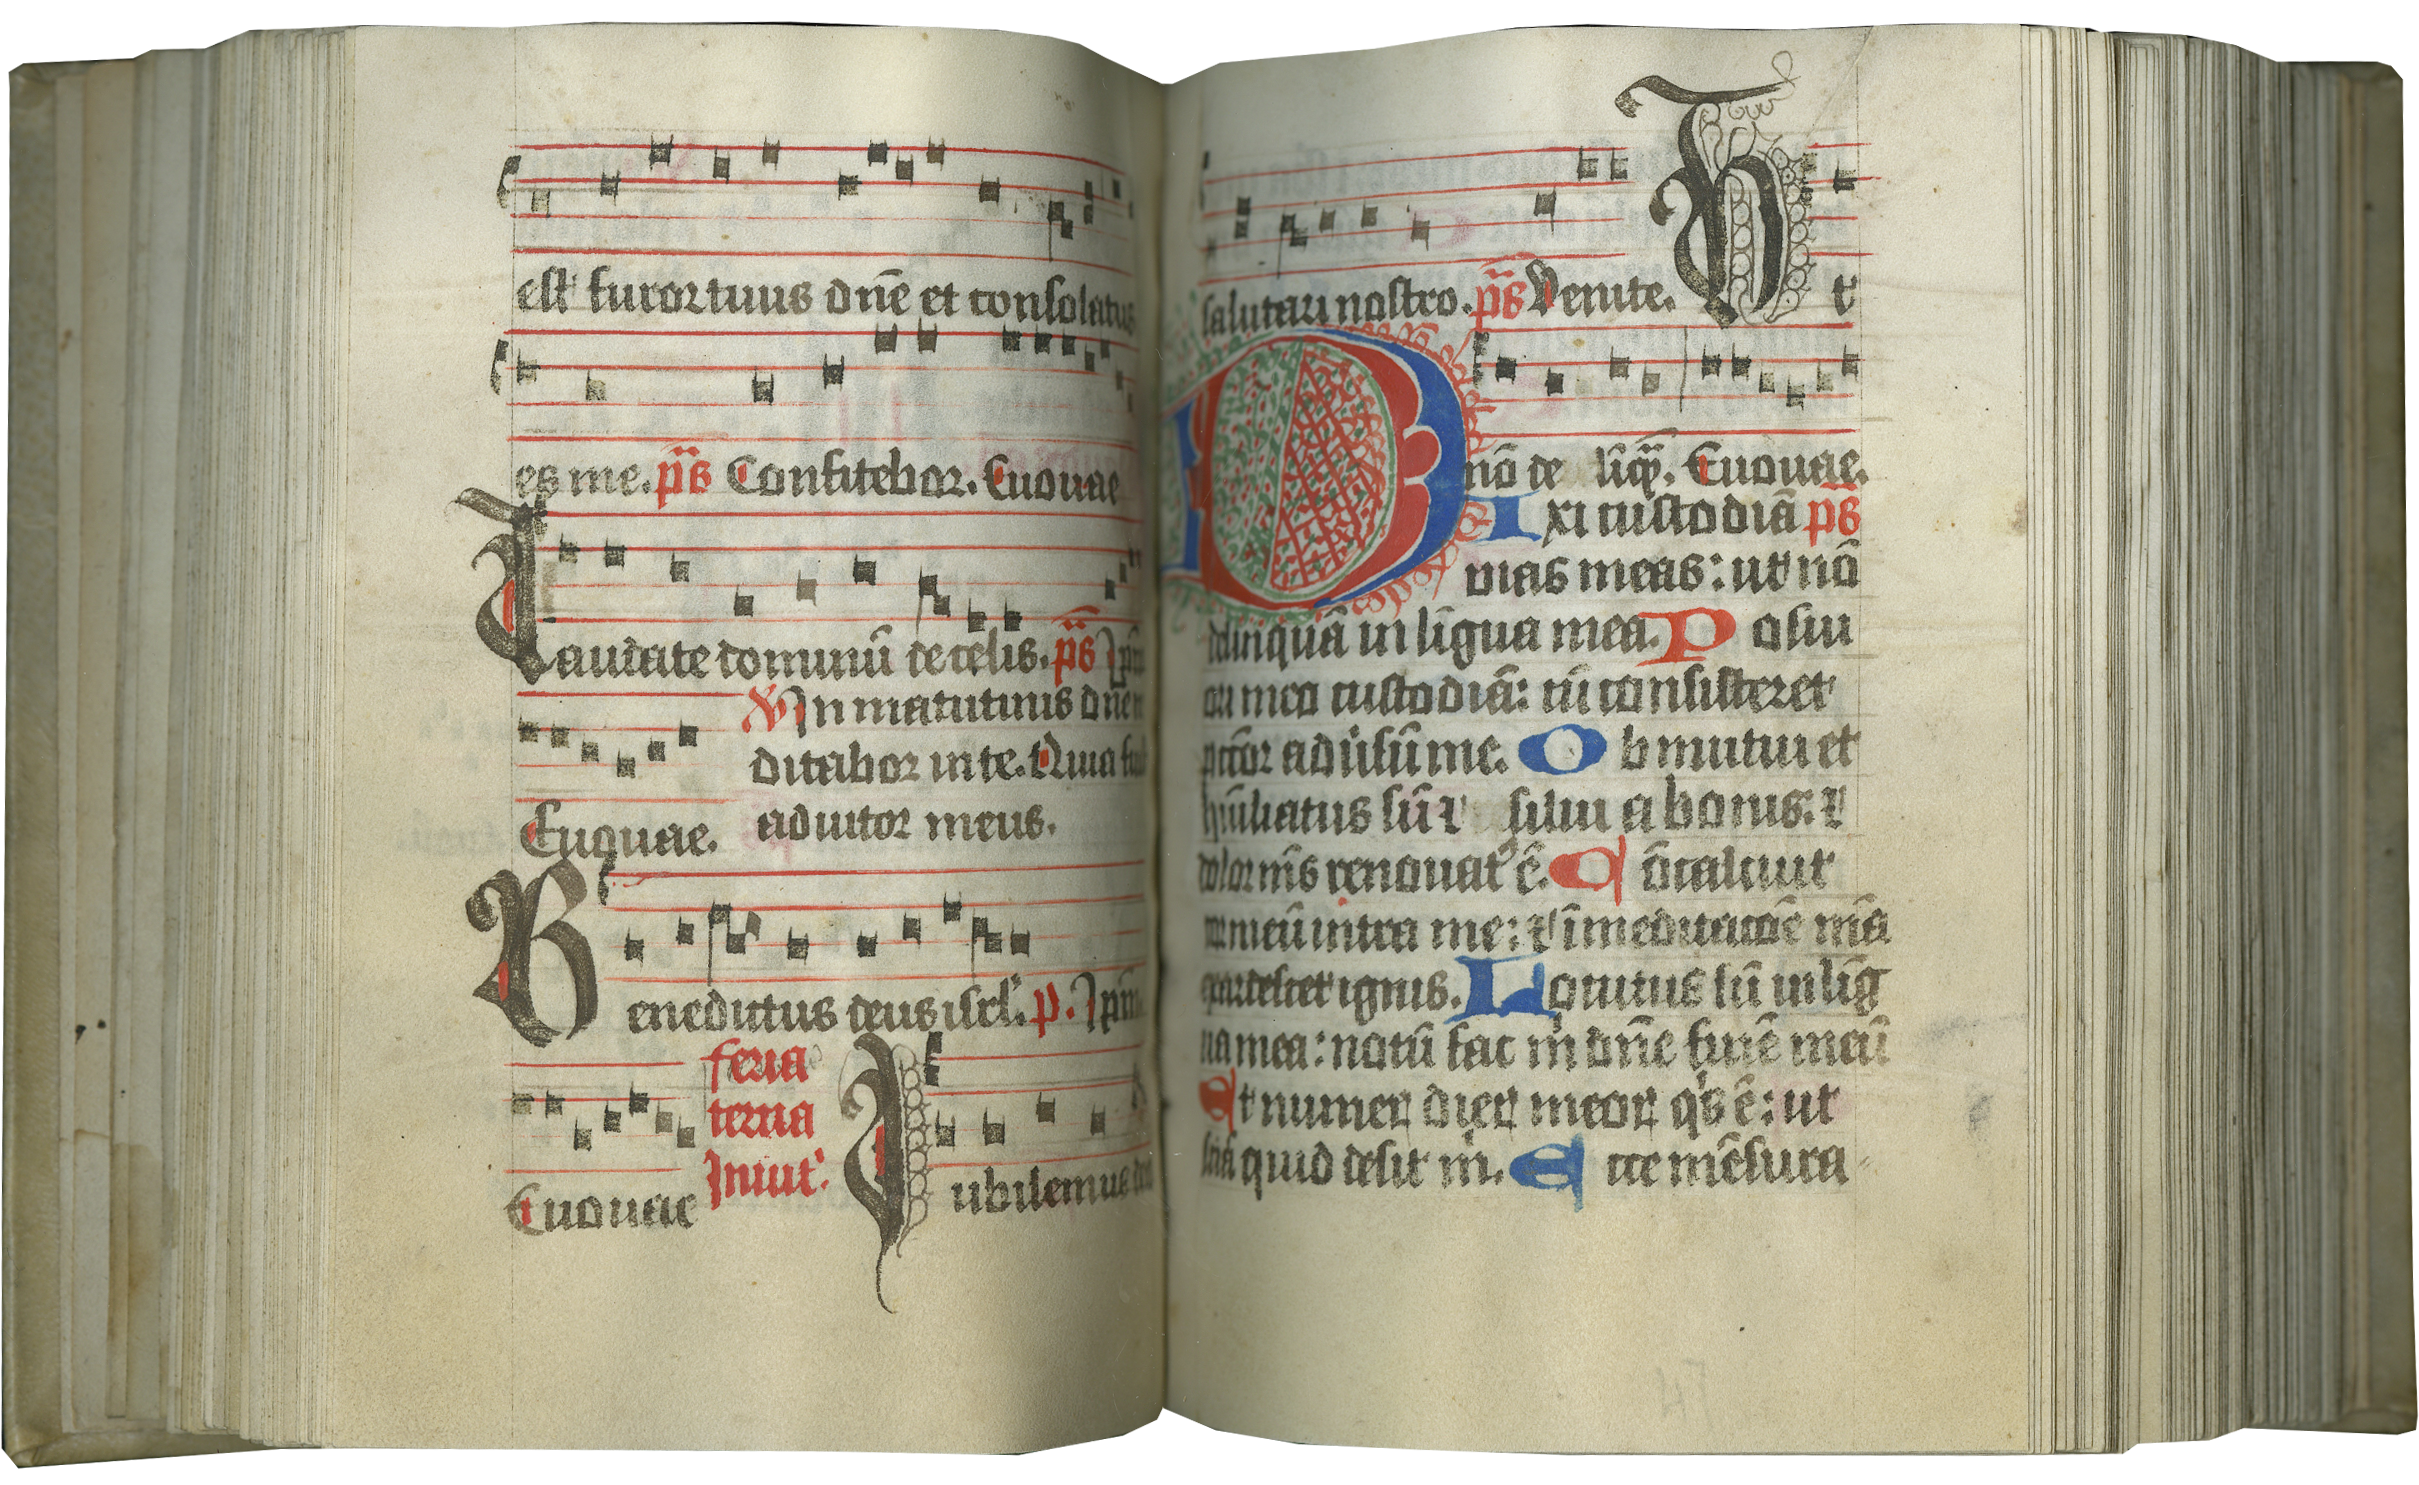 est furor tuus dñe et consolatus
es me. p̄s Confitebor. Euouae
Laudate dominū de celis. p̄s Ip̄m
V In matutinis dñe
ditabor in te. Quia
Euouae. adiutor meus.
Benedictus deus isrl'. p. Ip̄m
feria
tercia
Inuit'.
Euouae Iubilemus deo
salutari nostro. p̄s Venite. Vt
nō de liq̄. Euouae.
DIxi custodiā p̄s
vias meas: ut nō
delinquā in līgua mea. Posui
ori meo custodiā: cū consisteret
pctōr adūsū me. Obmutui et
hūiliatus sū ⁊ silui a bonis: ⁊
dolor mē̄s renouat' ē. Cōcaluit
cor meū intra me: ⁊ ī meditatiōe mēa
exardescet ignis. Locutus sū in līg
ua mea: notū fac m̄ dñe finē meū
Et numerꝝ dierꝝ meoꝝ q's ē: ut
sciā quid desit m̄. Ecce mēsura